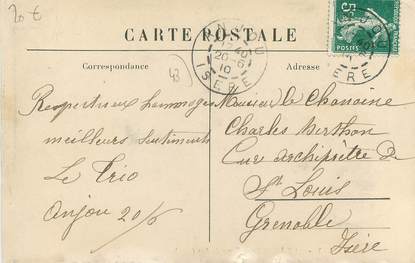 20 €
CARTE POSTALE
Correspondance
Adresse
43
ANJOU
20-6
10
ISERE
5c
POSTES
Respectueux hommages
meilleurs sentiments
Le Trio
Anjou 20/6
Monsieur le Chanoine
Charles Berthon
Curé archiprêtre de
St Louis
Grenoble
Isère